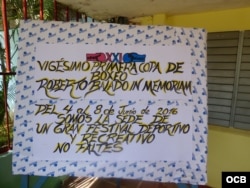 XXI
VIGÉSIMO PRIMERA COPA DE
BOXEO
ROBERTO BALADO IN MEMORIAM
DEL 4 AL 8 DE JUNIO DE 2016
SOMOS LA SEDE DE
UN GRAN FESTIVAL DEPORTIVO
RECREATIVO
NO FALTES
OCB